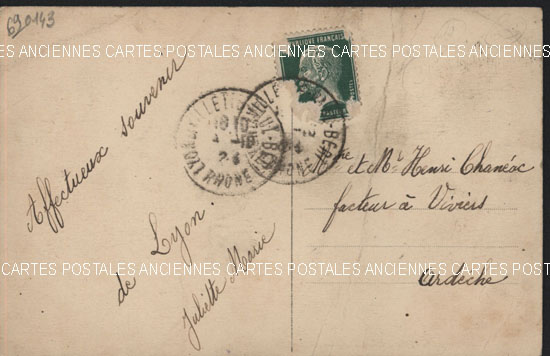 690143
CARTES POSTALES ANCIENNES CARTES POSTALES ANCIENNES CARTES POSTALES ANCIENNES
RÉPUBLIQUE FRANÇAISE
POSTES
LYON
RHONE
RHONE
Affectueux souvenir
de Lyon.
Juliette Marie
et Mr Henri Chanéac
facteur à Viviers
Ardèche
CARTES POSTALES ANCIENNES CARTES POSTALES ANCIENNES CARTES POSTALES ANCIENNES